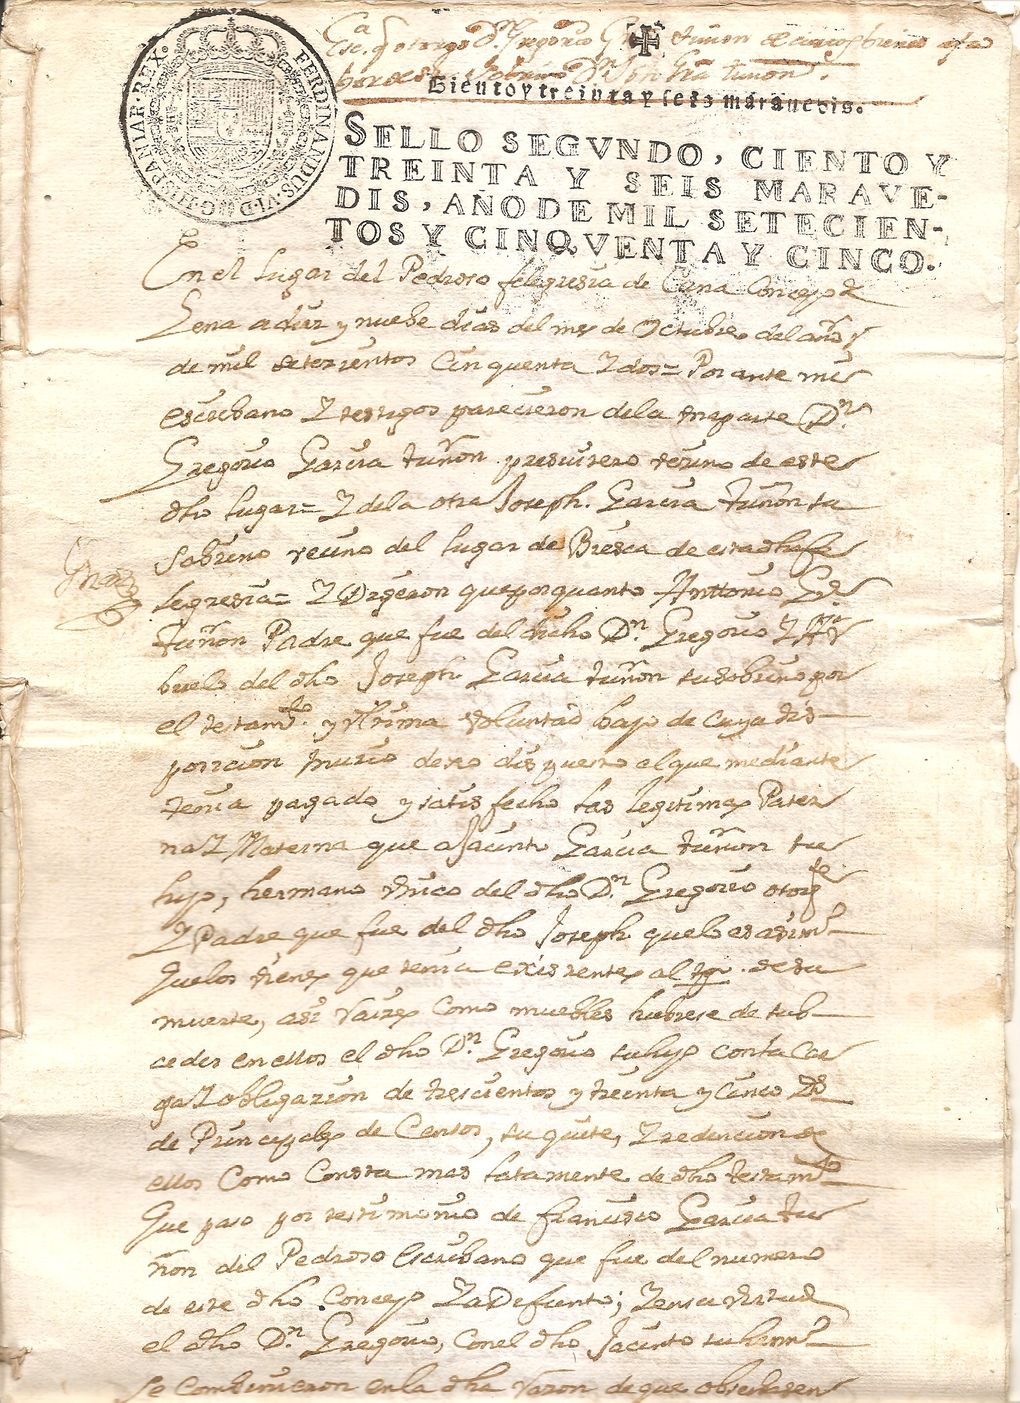 FERDINANDUS.VI.D.G.HISPANIAR.REX.
Esc.ª q otorgo D.n Gregorio Tuñon
D.n Tuñon
Ciento y treinta y seis maravedis.
SELLO SEGVNDO, CIENTO Y
TREINTA Y SEIS MARAVE-
DIS, AÑO DE MIL SETECIEN-
TOS Y CINQVENTA Y CINCO.
En el lugar del Pedroso felegresia de Concejo de
Lena a diez y nuebe dias del mes de Octubre del año
de mil setezientos Cinquenta Y dos= Por ante mi
escribano Y testigos parecieron dela una parte D.n
Gregorio Garcia tuñon presvitero vecino de este
dho lugar= Y dela otra Joseph Garcia tuñon su
Sobrino vecino del lugar de Bresca de esta dha fe
legresia= Y Digeron que por quanto Anttonio G.ª
tuñon Padre que fue del dicho D.n Gregorio Y A
buelo del dho Joseph Garcia tuñon su sobrino por
el testam.to y vltima voluntad bajo de cuya dis
posicion murio dexo dispuesto el que mediante
tenia pagado y satisfecho las legitimas Pater
na Y Materna que a Jacinto Garcia tuñon su
hijo, hermano vnico del dho D.n Gregorio otorg.te
Y Padre que fue del dho Joseph que lo es asim.o
que los vienes que tenia existentes al tpo. de su
muerte, asi raizes como muebles hubiese de sub
ceder en ellos el dho D.n Gregorio su hijo con la car
ga Y obligazion de trescientos y treinta y cinco Ds
de Principales de Censos, su quite, Y redencion de
ellos Como Consta mas latamente de dho testam.to
Que paso por testimonio de francisco Garcia tu
ñon del Pedroso Escribano que fue del numero
de este dho Concejo Ya Defunto; Y en su virtud
el dho D.n Gregorio, con el dho Jacinto su herm.o
Se combinieron en la dha razon de que obserbasen